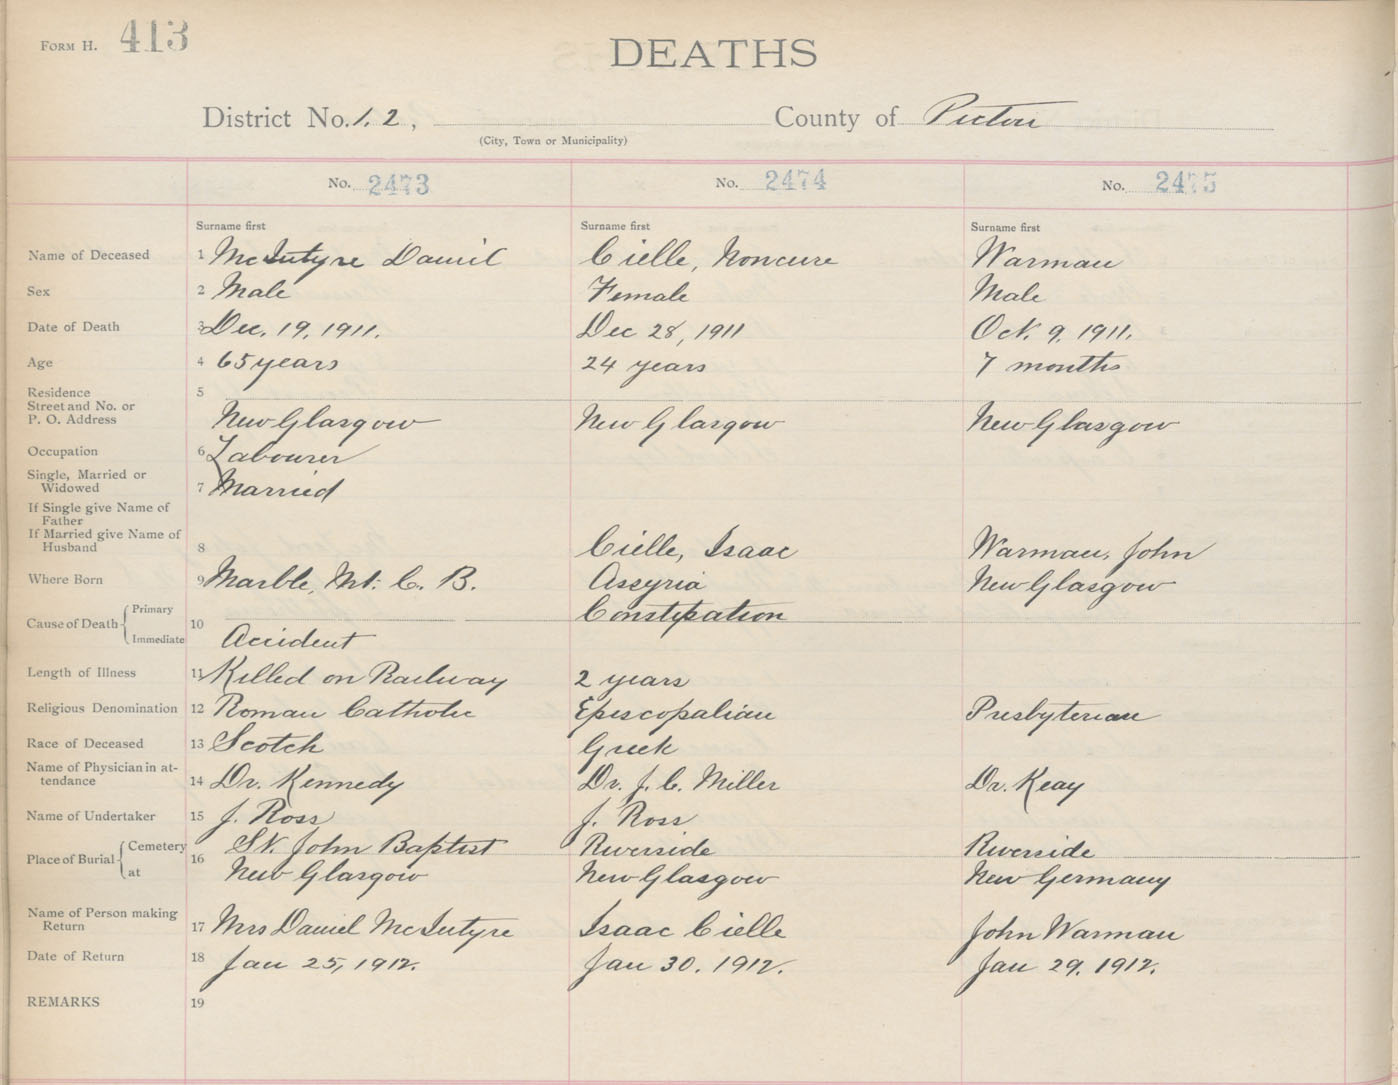 FORM H. 413
DEATHS
District No. 1.2, County of Pictou
(City, Town or Municipality)
No. 2473 No. 2474 No. 2475
Surname first Surname first Surname first
Name of Deceased 1 McIntyre Daniel Cielle, Noncure Warman
Sex 2 Male Female Male
Date of Death 3 Dec. 19, 1911. Dec 28, 1911 Oct. 9, 1911.
Age 4 65 years 24 years 7 months
Residence 5
Street and No. or
P. O. Address New Glasgow New Glasgow New Glasgow
Occupation 6 Labourer
Single, Married or
Widowed 7 Married
If Single give Name of
Father
If Married give Name of
Husband 8 Cielle, Isaac Warman, John
Where Born 9 Marble, Mt. C. B. Assyria New Glasgow
Cause of Death Primary Constipation
10 Immediate Accident
Length of Illness 11 Killed on Railway 2 years
Religious Denomination 12 Roman Catholic Episcopalian Presbyterian
Race of Deceased 13 Scotch Greek
Name of Physician in at-
tendance 14 Dr. Kennedy Dr. J. C. Miller Dr. Keay
Name of Undertaker 15 J. Ross J. Ross
Place of Burial Cemetery St. John Baptist Riverside Riverside
16 at New Glasgow New Glasgow New Germany
Name of Person making
Return 17 Mrs Daniel McIntyre Isaac Cielle John Warman
Date of Return 18 Jan 25, 1912. Jan 30. 1912. Jan 29. 1912.
REMARKS 19